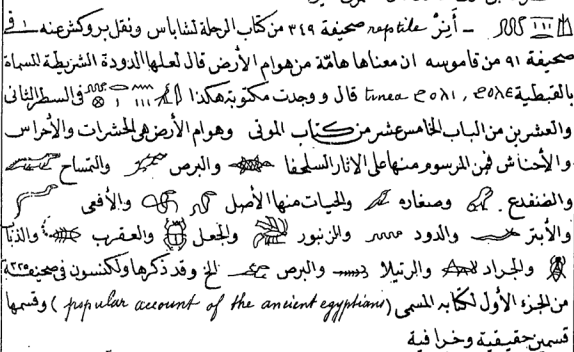 – أَيَنْرُ reptile صحيفة ٣٤٩ من كتاب الرحلة لشاباس ونقل بروكش عنه في
صحيفة ٩١ من قاموسه ان معناها هامّة من هوام الأرض قال لعلها الدودة الشريطة المسماة
بالقبطية tinea قال ووجدت مكتوبة هكذا في السطر الثانى
والعشرين من الباب الخامس عشر من كتاب الموتى وهوام الأرض هى الحشرات والأحراس
والأحناش فمن المرسوم منها على الاثار السلحفا والبرص والتمساح
والضفدع وصغاره والحيات منها الأصل والأفعى
والأبتر والدود والزنبور والجعل والعقرب والذباب
والجراد والرتيلا والبرص الخ وقد ذكرها ولكنسون فى صحيفة ٢٣٥
من الجزء الأول لكتابه المسمى (popular account of the ancient egyptians) وقسمها
قسمين حقيقية وخرافية